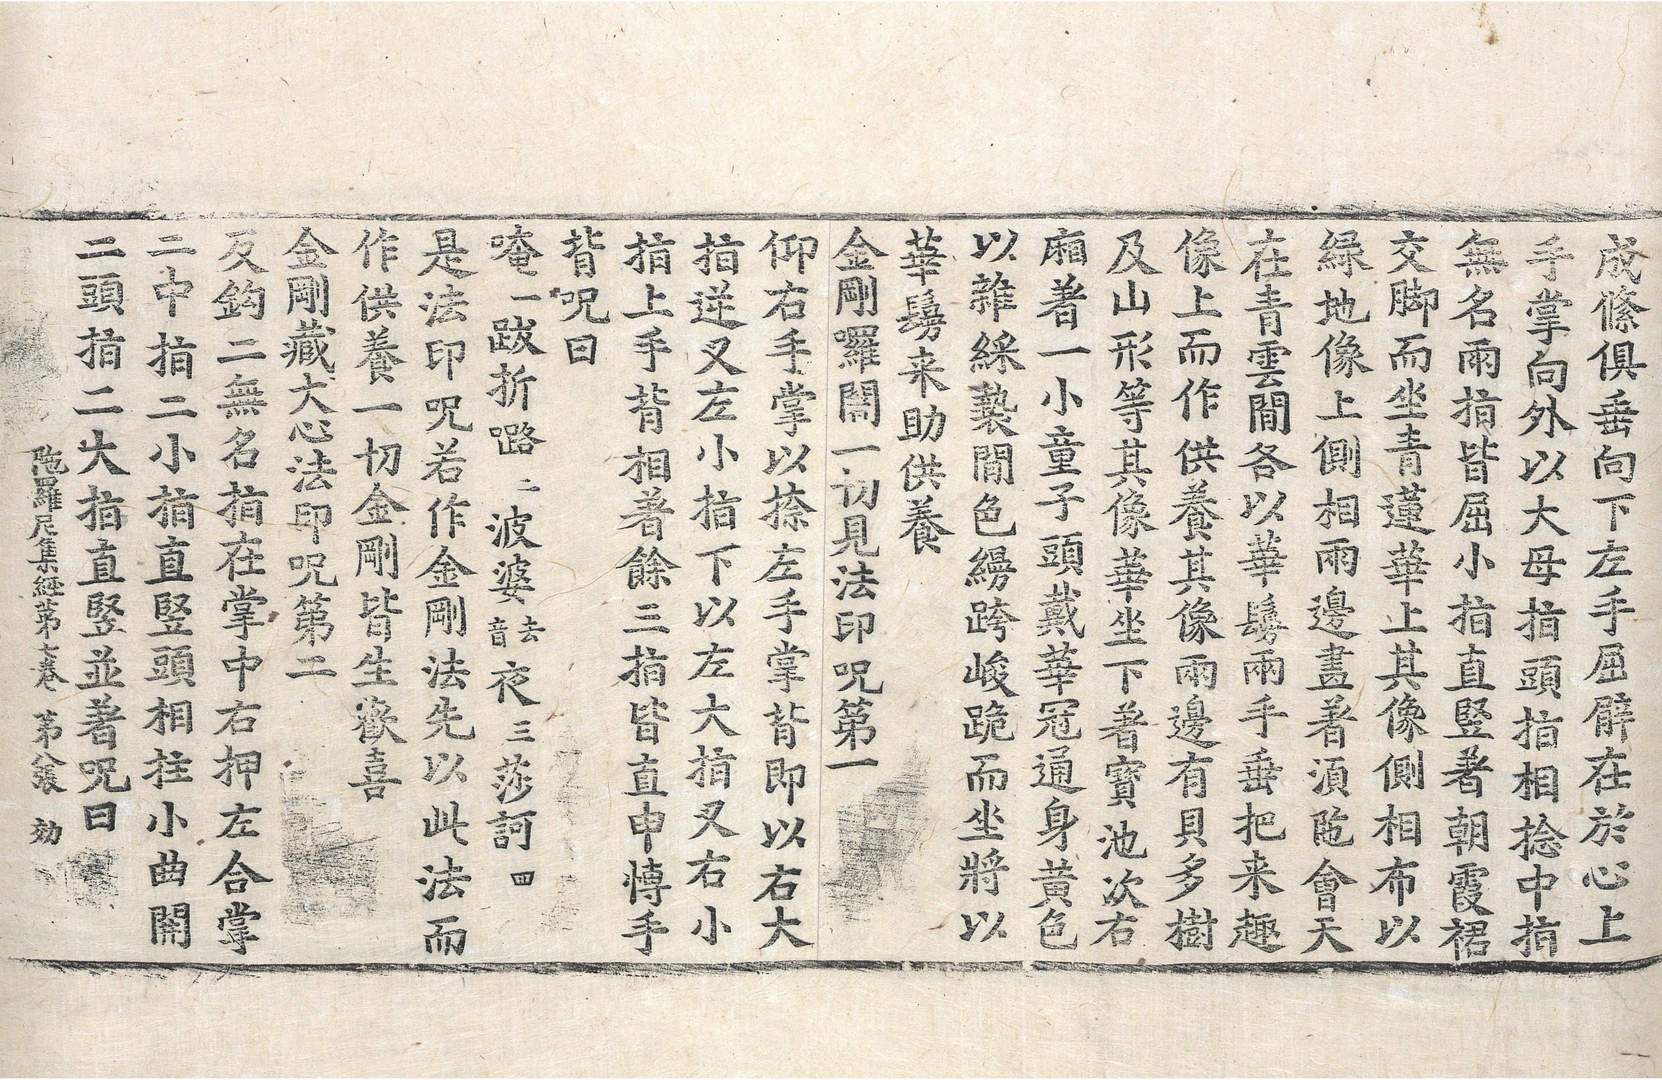 成絛俱垂向下左手屈臂在於心上
手掌向外以大母指頭指相捻中指
無名兩指皆屈小指直竪著朝霞裙
交脚而坐青蓮華上其像側相布以
綠地像上側相兩邊畫著湏陁會天
在青雲間各以華鬘兩手垂把来趣
像上而作供養其像兩邊有貝多樹
及山形等其像華坐下著寳池次右
廂著一小童子頭戴華冠通身黃色
以雜綵褺間色縵跨峻跪而坐將以
華鬘来助供養
金剛囉闍一切見法印呪第一
仰右手掌以捺左手掌背即以右大
指逆叉左小指下以左大指叉右小
指上手背相著餘三指皆直申慱手
背呪曰
唵一跋折囉二波婆去音夜三莎訶四
是法印呪若作金剛法先以此法而
作供養一切金剛皆生歡喜
金剛藏大心法印呪第二
反鈎二無名指在掌中右押左合掌
二中指二小指直竪頭相拄小曲開
二頭指二大指直竪並著呪曰
陁羅尼集經第七卷 第八張 効